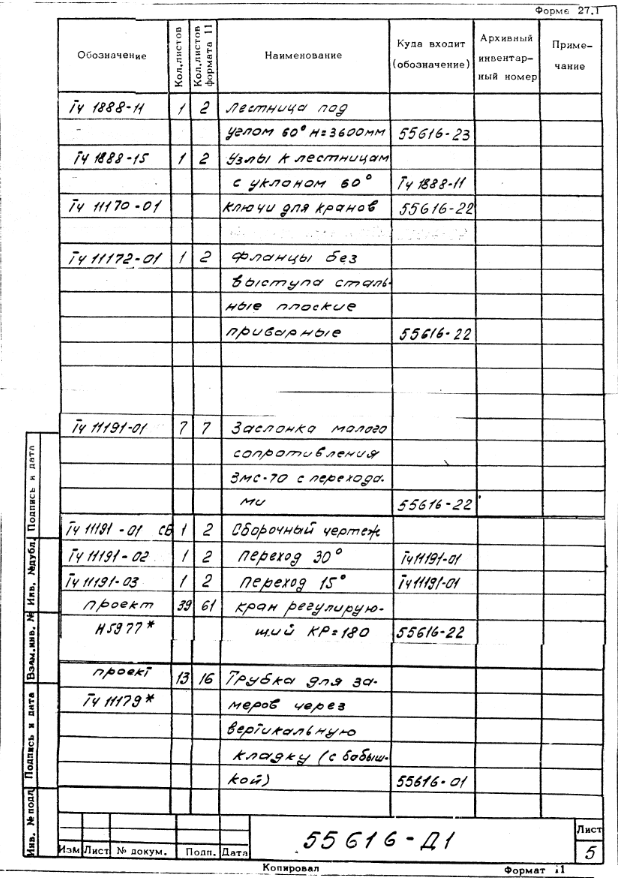 Форма 27.1
Обозначение | Кол.листов | Кол.листов формата 11 | Наименование | Куда входит (обозначение) | Архивный инвентар-ный номер | Приме-чание
Тч 1888-11 | 1 | 2 | Лестница под
углом 60° Н=3600мм | 55616-23
Тч 1888-15 | 1 | 2 | Узлы к лестницам
с уклоном 60° | Тч 1888-11
Тч 11170-01 | Ключи для кранов | 55616-22
Тч 11172-01 | 1 | 2 | Фланцы без
выступа сталь-
ные плоские
приварные | 55616-22
Тч 11191-01 | 7 | 7 | Заслонка малого
сопротивления
ЗМС-70 с перехода-
ми | 55616-22
Тч 11191-01 СБ | 1 | 2 | Сборочный чертеж
Тч 11191-02 | 1 | 2 | Переход 30° | Тч 11191-01
Тч 11191-03 | 1 | 2 | Переход 15° | Тч 11191-01
проект | 39 | 61 | кран регулирую-
Н5977* | щий КР=180 | 55616-22
проект | 13 | 16 | Трубка для за-
Тч 11179* | меров через
вертикальную
кладку (с бобыш-
кой) | 55616-01
Инв. № подл | Подпись и дата | Взам.инв. № | Инв. №дубл. | Подпись и дата
55616-Д1
Лист
5
Изм | Лист | № докум. | Подп. | Дата
Копировал
Формат 11